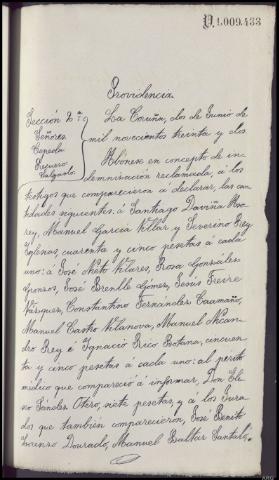 D.1.009.433
Providencia
Sección 2ª
Señores
Cepeda
Pequero
Salgado.
La Coruña, dos de Junio de
mil novecientos treinta y dos
Abonese en concepto de in-
demnización reclamada, a los
testigos que comparecieron a declarar, las can-
tidades siguientes: á Santiago Daviña
rey, Manuel García Villar y Severino Rey
Iglesias, cuarenta y cinco pesetas á cada
uno: á José Nieto Vilares, Rosa Gonzalez
José Brenlle Gomez, Jesus Freire
Vázquez, Constantino Fernández Caamaño,
Manuel Castro Vilanova, Manuel Nican-
dro Rey é Ignacio Rico Botana, cincuen-
ta y cinco pesetas á cada uno: al perito
médico que compareció á informar, Don
Sánchez Otero, siete pesetas, y á los Jura-
dos que tambien comparecieron, José Benito
Lorenzo Dourado, Manuel Baltar